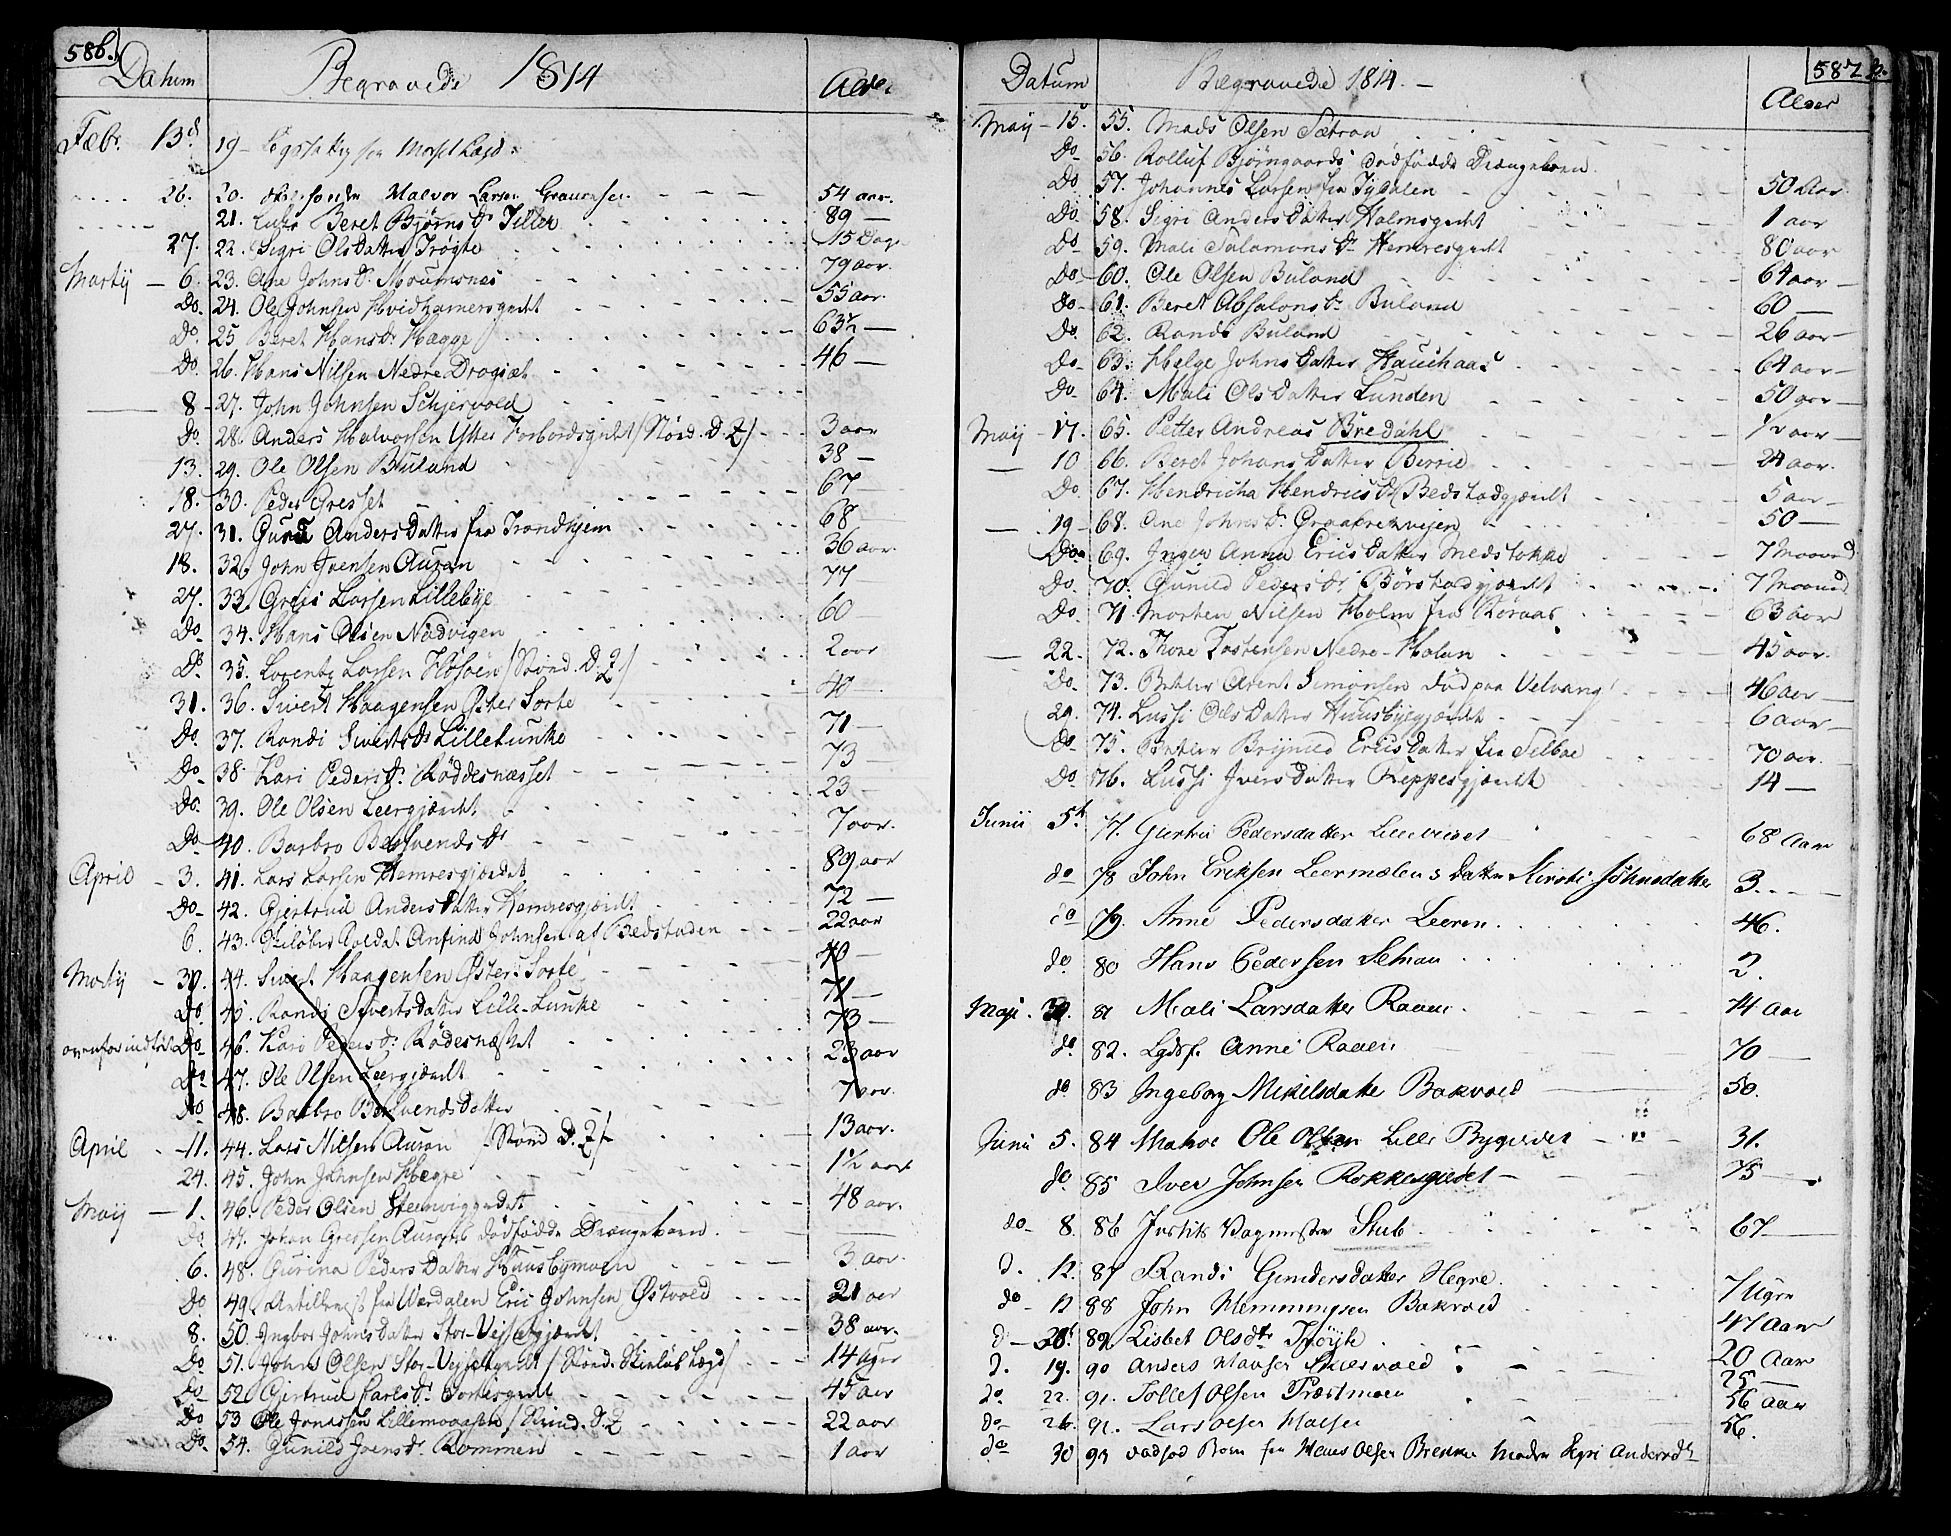 586.
Datum Begravede 1814 Alder
Febr. 13d 19 –
26. 20. Halvor Larsen 54 aar.
21. Beret Bjørns Dr Tiller 89 —
27. 22. Sigri OlsDatter Trøgte 15 Dage
Martij — 6. 23. Ane Johns Dr 79 aar.
Do. 24. Ole Johnsen 55 aar.
Do 25 Beret Hans Dr Hægge 63½ —
Do. 26. Hans Nilsen Nedre Dragset 46 —
8 – 27. John Johnsen Schjervold
Do. 28. Anders Halvorsen Ytter Forbordsgiedet /Nord. D. Z/ 3 aar
13. 29. Ole Olsen Buland 38 —
18. 30. Peder Gresset 67 —
27. 31. Anders Datter fra Trondhjem 68
18. 32. John Ivensen Auran 36 aar.
27. 33. Greis Larsen Lillebye 77
Do 34. Hans Olsen Nadvigen 60
Do 35. Lorentz Larsen Hosøen /Nord. D. Z./ 2 aar
31. 36. Sivert Haagensen Øster Sorte 40
Do. 37. Randi Siverts Dr Lillelunke 71 —
Do 38 Kari Peders Dr. Røddesnæsset 73 —
Do. 39. Ole Olsen Leergjærdet 23 —
Do 40. Barbro Dr 7 aar.
April – 3. 41. Lars Larsen Hemresgjærdet 89 aar
Do – 42. Gjertrud Anders Datter Hemresgjærdt 72 —
6. 43. Skiløber Soldat Anfind Johnsen af Bedstaden 22 aar
Martij – 30. 44. Sivert Haagensen Øster Sorte 40 —
Do. 45. Randi Siverts Datter Lille-Lunke 71 —
ovenfor indført Do 46. Kari Peders Dr. Rødesnæsset 73 —
Do 47. Ole Olsen Leergjærdt 23 aar
Do 48. Barbro Datter 7 aar.
April – 11. 44. Lars Nilsen Auran /Nord D. Z/ 13 aar.
24. 45. John Johnsen Hegre 1½ aar
Maij — 1. 46. Peder Olsen Steenviggiedet 48 aar.
Do 47. Johan Gresen dødfødde Drængebarn. —
6. 48. Gurina Peders Datter Huusbymoen 3 aar.
Do 49. fra Værdalen Eric Johnsen Østvold 21 aar
8. 50. Ingbor Johns Datter Stor-Vejselgjærdet 38 aar.
Do 51. John Olsen Stor-Vejselgierdt /Nord. Skieløb. Lægd/ 14 Uger
Do – 52. Gjertrud Carls Dr. 45 aar
Do 53 Ole Jonassen Lillemoaasen /Nord. D. Z 22 aar
Do. 54. Gunild Ivers Dr. Rommen 1 aar
587.
Datum Begravede 1814. – Alder
Maij – 15. 55. Mads Olsen Sætran
Do – 56. Rolluf Bjørngaards dødfødde Drængebarn
Do 57. Johannes Larsen fra Tydalen 50 Aar
Do. 58. Sigri Anders Datter Halmsgiedet 1 aar
Do – 59. Mali Salamons Dr Hemresgiedt 80 aar
Do – 60. Ole Olsen Buland 64 aar —
Do – 61. Beret Absalons Dr Buland 60 —
Do. 62. Rands Buland 26 aar —
Do – 63. Helge Johns Datter 64 aar —
Do – 64. Mali Ols Datter Lunden 50 aar —
Maij – 17. 65. Petter Andreas Bredahl ½ aar —
— 10 66. Beret Johans Datter 24 aar.
Do. 67. Hendricha Hendrics Dr Bedstadgjærdt 5 aar –
— 19 – 68. Ane Johns Dr. 50 —
Do 69. Inger Anna Erics Datter Medstokke 7 Maaned
Do. 70. Gunild Peders Dr Børstadgjærdt 7 Maaned
Do 71. Morten Nilsen Holm fra Roraas 63 aar
— 22 – 72. Thore Tostensen Nedre-Holan 45 aar.
Do. 73. Arent Simonsen død paa Velvang 46 aar —
29. 74. Lussi Ols Datter Huusbyegjærdet 6 aar —
Do – 75. Brynild Erics Datter fra Selboe 70 aar.
Do 76. Lussi Ivers Datter Reppesgjærdt 14 —
Junii 5t 77. Giertru Pedersdatter 68 Aar
do – 78 John Eriksen Leermælens datter Kirsti Johnsdatter 3 — —
do 79. Anne Pedersdatter Leeren. 46.
do. 80 Hans Pedersen Selnau 2.
Maji. 30. 81 Mali Larsdatter Raaen. 74 Aar
do. 82. Lgdsf. Anne Raaen 70 —
do 83 Ingeborg Mikelsdatte Bakvold 50.
Junii 5. 84 Ole Olsen Lille Bygierdet 31.
do. 85 Iver Johnsen Rokkesgierdet 75 —
do – 8. 86 Justits Vagmester Skub 67 —
d. 12. 87 Randi Gundersdatter Hegre. 7 Ugre
do – 12 88 John Hemmingsen Bakvold 47 Aar
d – 89 Lisbet Olsdtr Trøyte 20 Aar
d. 19. 90 Anders Skiervold 25 —
do. 22. 91. Tollef Olsen Præstmoen 56 Aar
do – 26. 92. Lars Olsen 56.
do 30 93 dødfød Barn fra Hans Olsen Brekken Moder Sigri Andersdtr